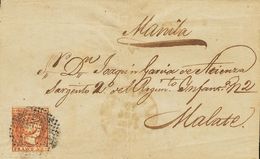 Manila
Sr. Dn. Joaquin Garcia de
Sargento 2o. del Regimto. Infanta. No 2
Malate.